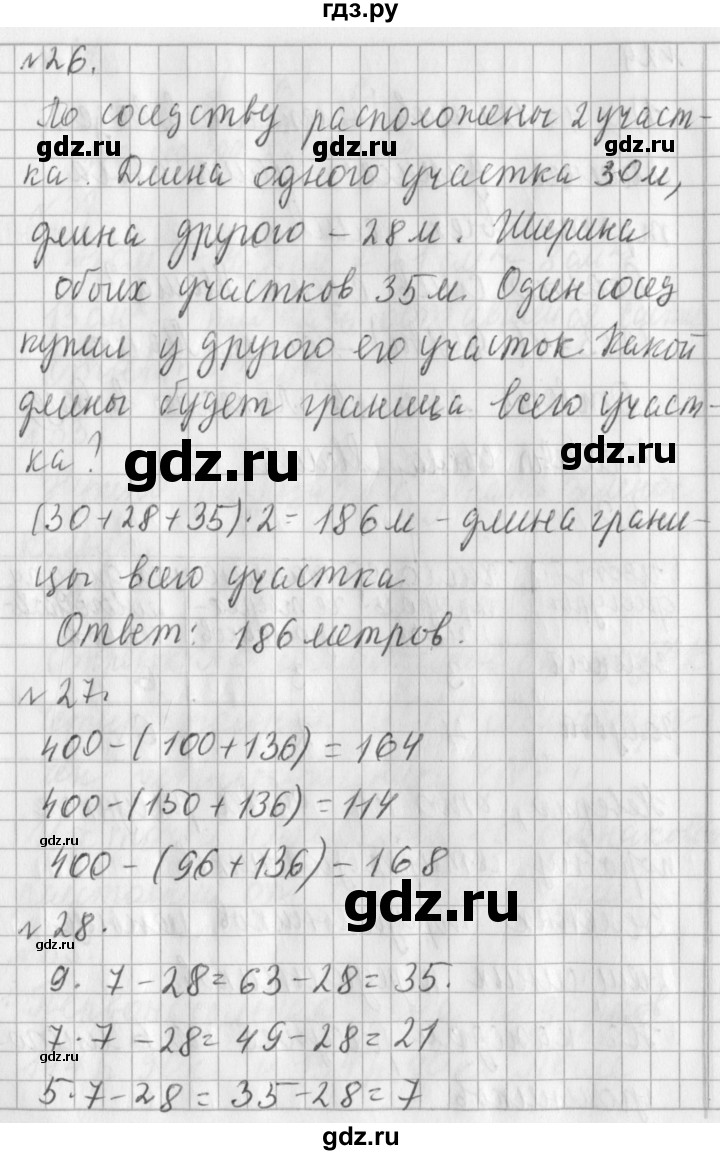 гдз.ру
№26.
По соседству расположены 2 участ-
ка. Длина одного участка 30м,
длина другого – 28м. Ширина
обоих участков 35м. Один сосед
купил у другого его участок. Какой
длины будет граница всего участ-
ка?
(30+28+35)·2=186м – длина грани-
цы всего участка
Ответ: 186 метров.
№27.
400-(100+136)=164
400-(150+136)=114
400-(96+136)=168
№28.
9·7-28=63-28=35.
7·7-28=49-28=21
5·7-28=35-28=7
gdz.ru
gdz.ru
gdz.ru
gdz.ru
gdz.ru
gdz.ru
gdz.ru
gdz.ru
gdz.ru
gdz.ru